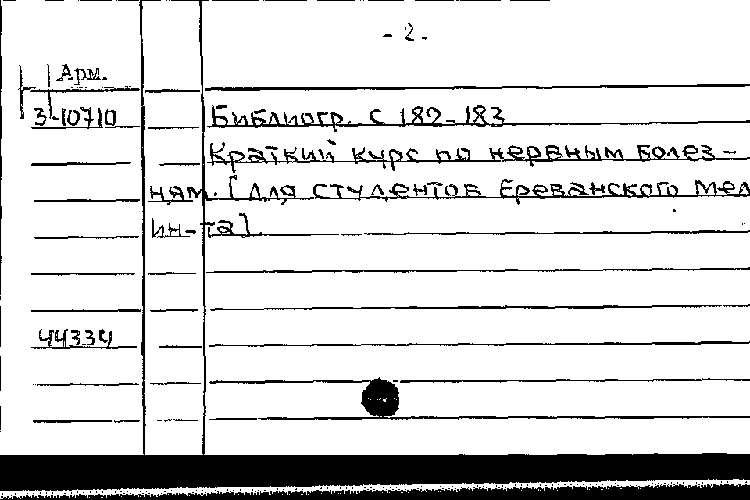 - 2 -
Арм.
3-10710
Библиогр. с 182-183
Краткий курс по нервным болез-
ням. [Для студентов Ереванского мед
ин-та].
44334